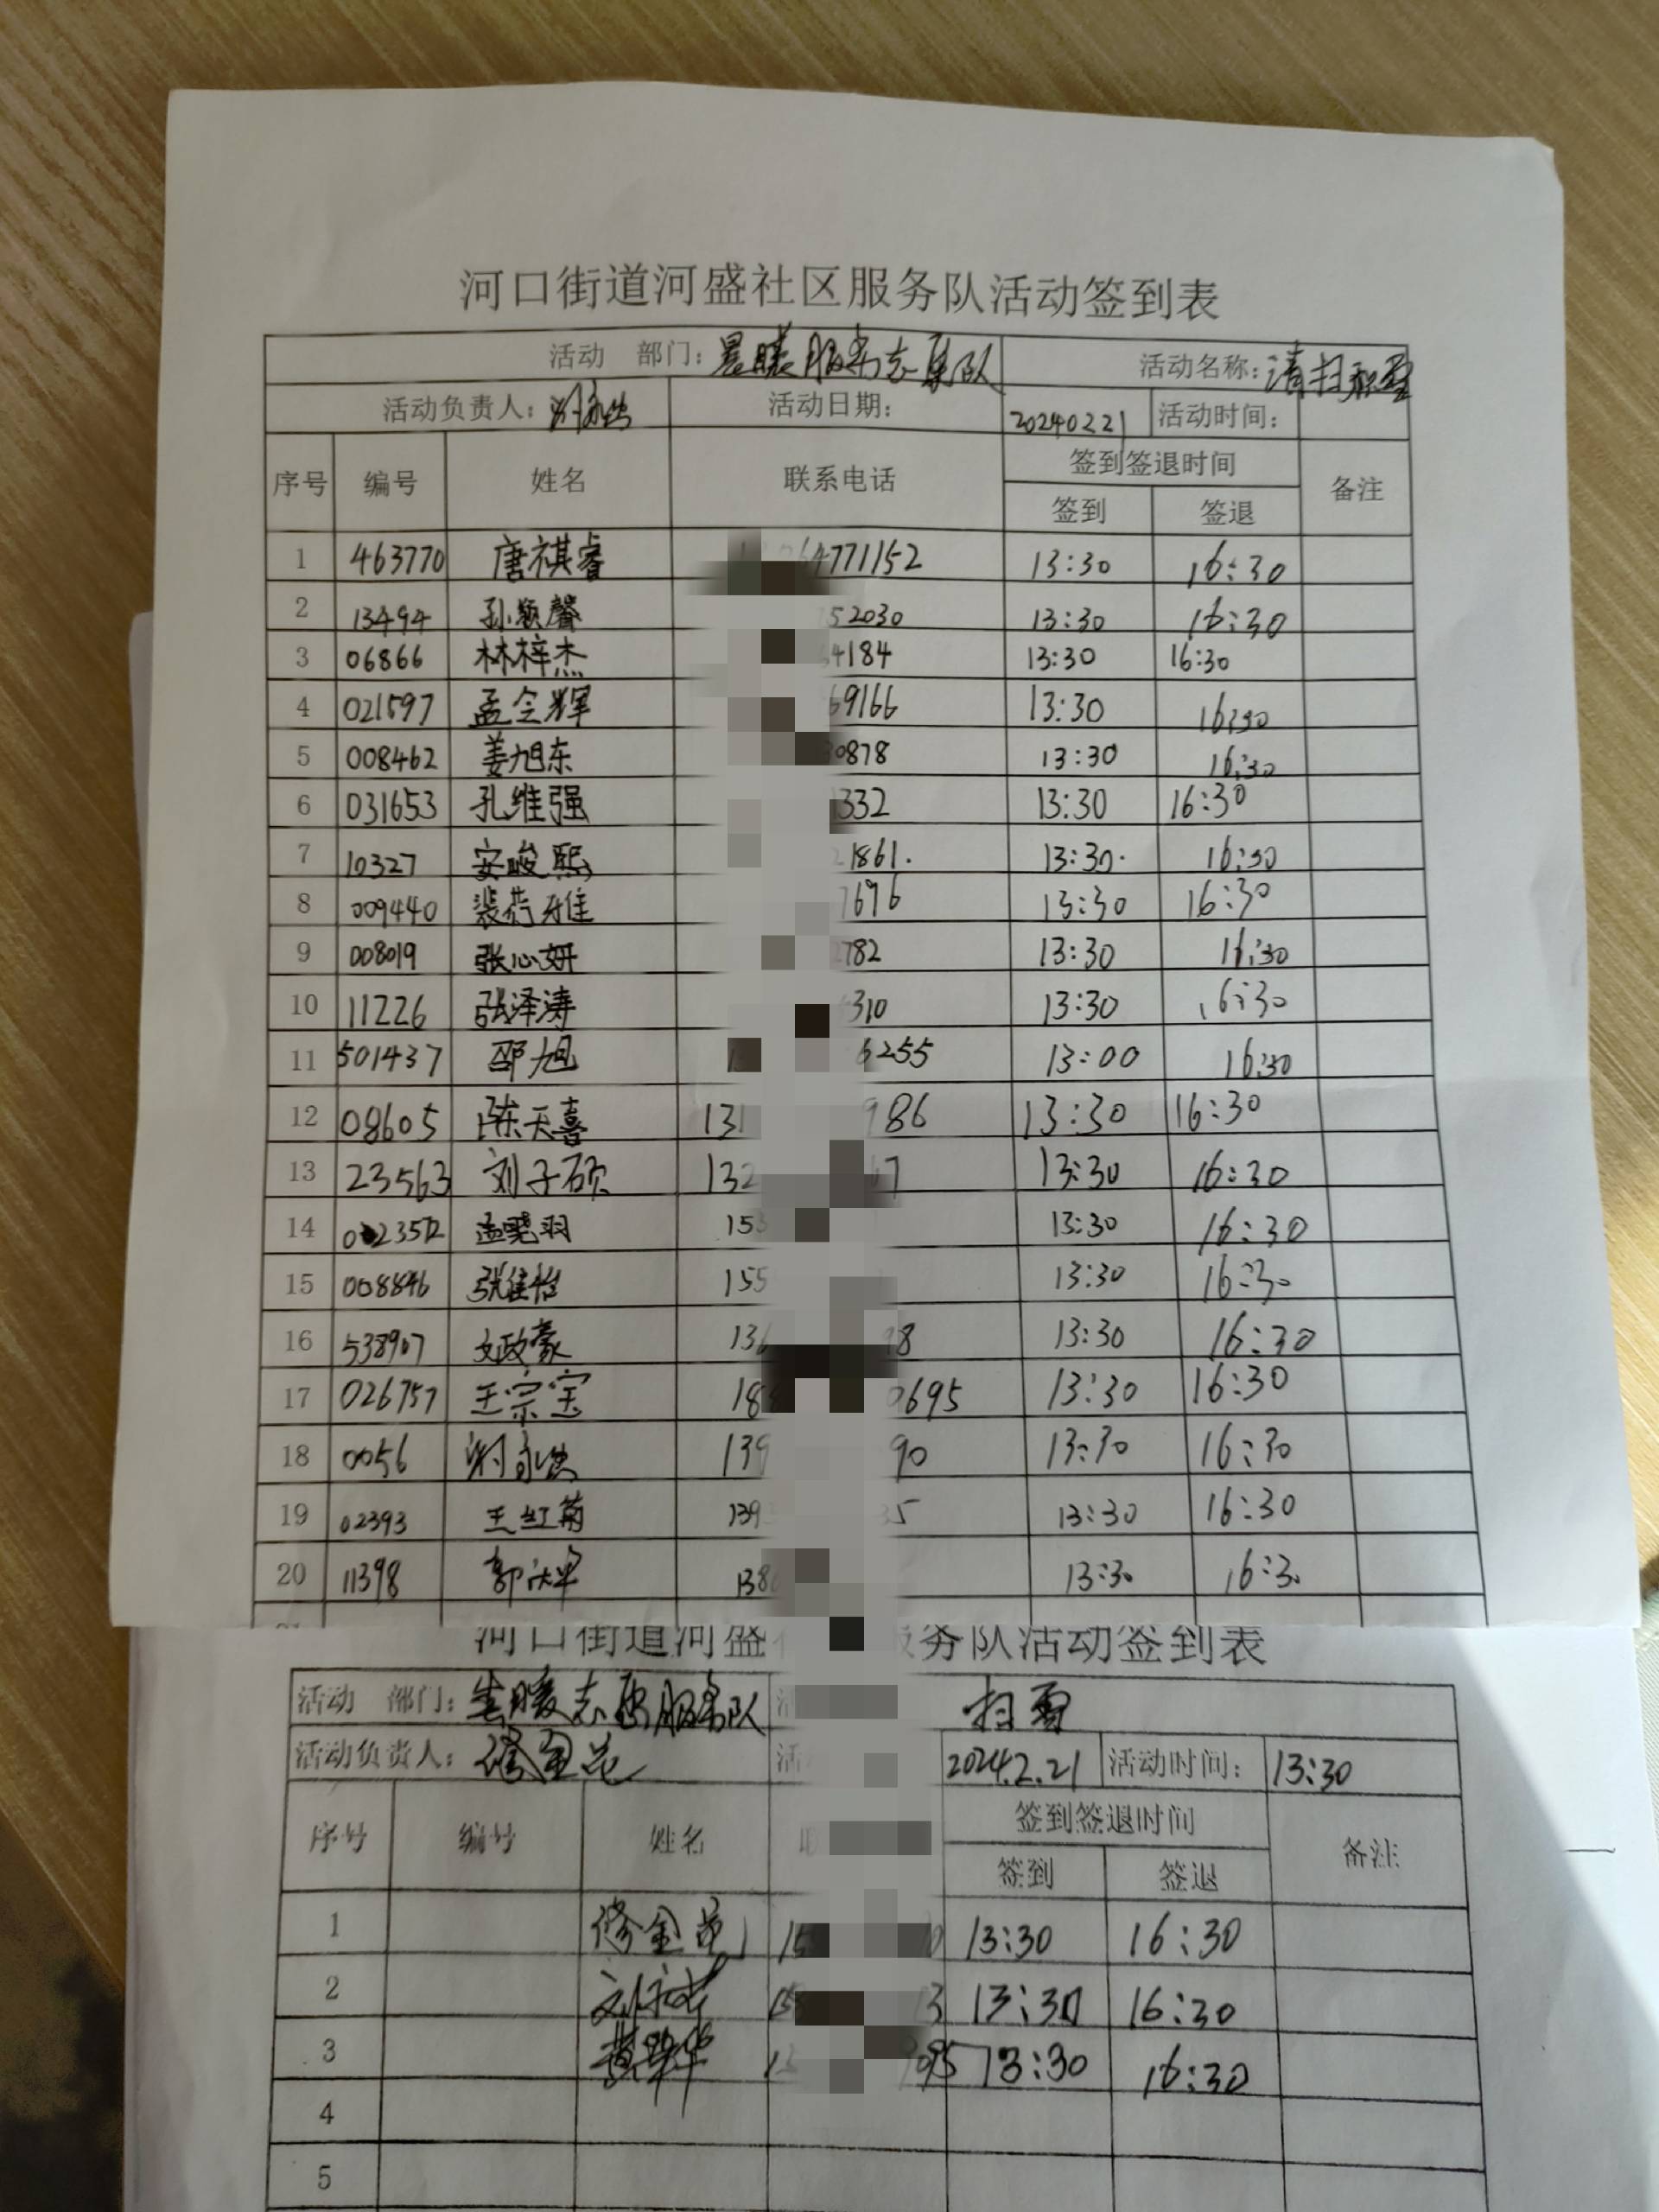 河口街道河盛社区服务队活动签到表
活动 部门: 晨暖服务志愿队 活动名称: 清扫积雪
活动负责人: 活动日期: 20240221 活动时间:
序号 编号 姓名 联系电话 签到签退时间 备注
签到 签退
1 463770 唐祺睿 64771152 13:30 16:30
2 13494 孙颖馨 52030 13:30 16:30
3 06866 林梓杰 4184 13:30 16:30
4 021597 孟令辉 69166 13:30 16:30
5 008462 姜旭东 0878 13:30 16:30
6 031653 孔维强 332 13:30 16:30
7 10327 安峻熙 1861. 13:30. 16:30
8 009440 裴荷雅 7696 13:30 16:30
9 008019 张心妍 2782 13:30 16:30
10 11226 张泽涛 310 13:30 16:30
11 501437 邵旭 6255 13:00 16:30
12 08605 陈天喜 131 986 13:30 16:30
13 23563 刘子硕 132 7 13:30 16:30
14 孟晓羽 153 13:30 16:30
15 008846 张佳怡 155 13:30 16:30
16 538907 文政豪 136 98 13:30 16:30
17 026757 王宗宝 188 0695 13:30 16:30
18 0056 139 90 13:30 16:30
19 02393 王红菊 139 35 13:30 16:30
20 11398 郭庆军 138 13:30 16:30
河口街道河盛社 服务队活动签到表
活动 部门: 志愿服务队 扫雪
活动负责人: 修金花 2024.2.21 活动时间: 13:30
序号 编号 姓名 签到签退时间 备注
签到 签退
1 修金花 15 0 13:30 16:30
2 13 13:30 16:30
3 9095 13:30 16:30
4
5